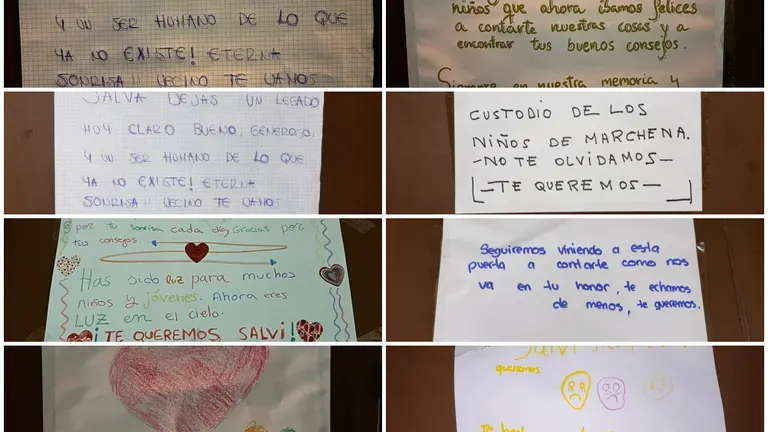 Y UN SER HUMANO DE LO QUE
YA NO EXISTE! ETERNA
SONRISA!! VECINO TE VAMOS
niños que ahora íbamos felices
a contarte nuestras cosas y a
encontrar tus buenos consejos.
Siempre en nuestra memoria y
SALVA DEJAS UN LEGADO
MUY CLARO BUENO, GENEROSO,
Y UN SER HUMANO DE LO QUE
YA NO EXISTE! ETERNA
SONRISA!! VECINO TE VAMOS
CUSTODIO DE LOS
NIÑOS DE MARCHENA.
-NO TE OLVIDAMOS-
-TE QUEREMOS-
por tu sonrisa cada día, Gracias por
tus consejos.
Has sido luz para muchos
niños y jóvenes. Ahora eres
LUZ en el cielo.
¡TE QUEREMOS SALVI!
Seguiremos viniendo a esta
puerta a contarte como nos
va en tu honor, te echamos
de menos, te queremos.
Salvi
queremos